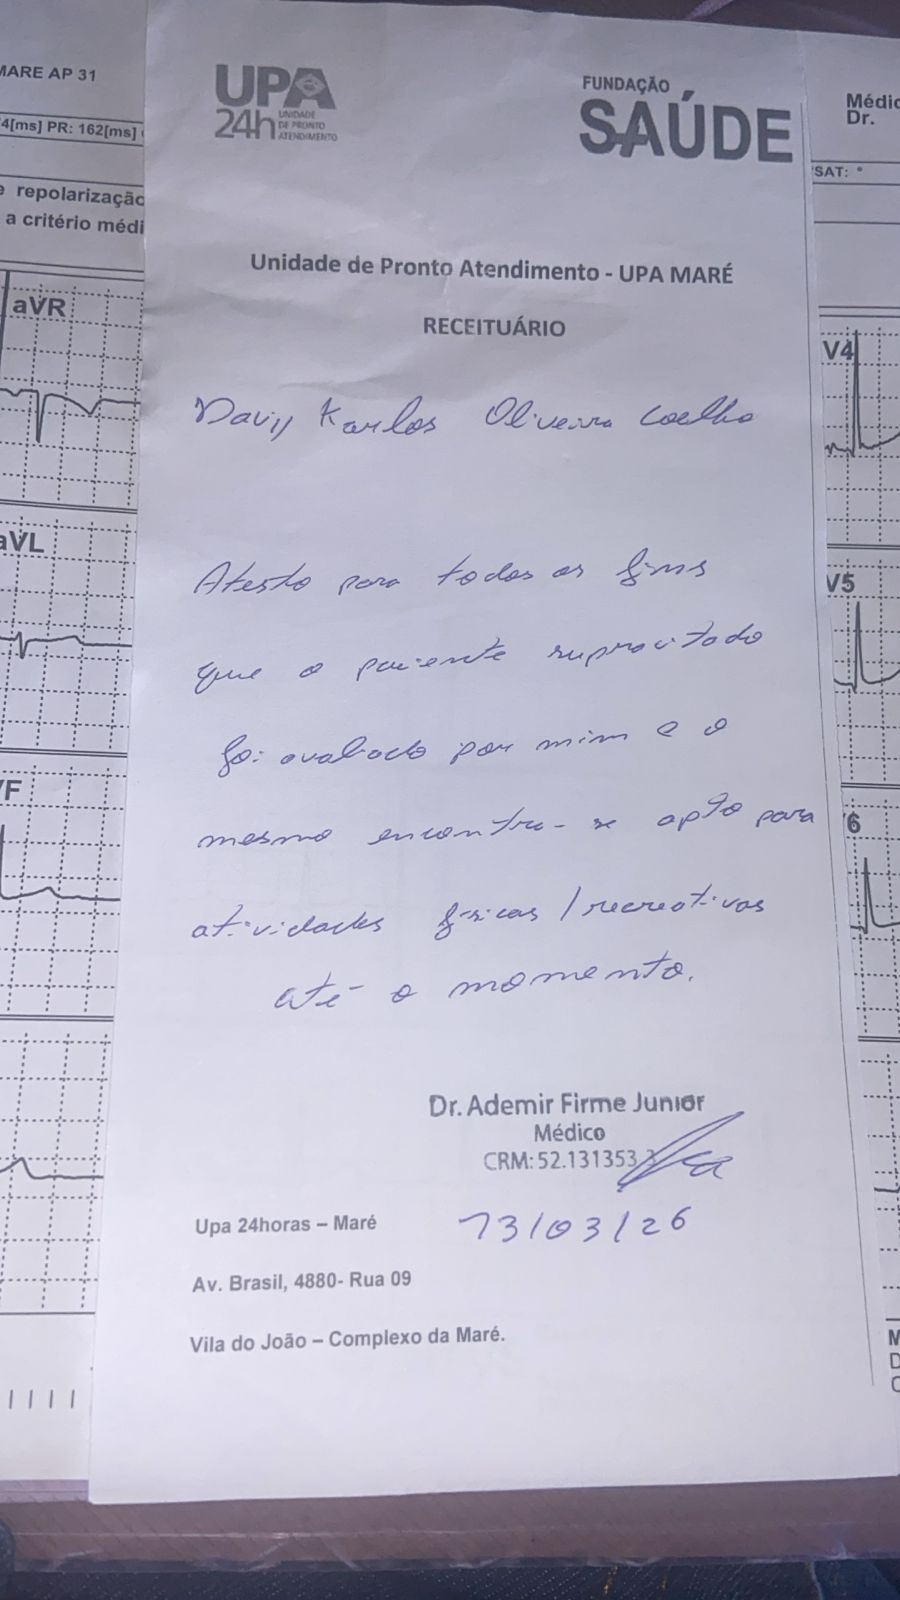 MARE AP 31
4[ms] PR: 162[ms]
e repolarização
a critério médi
aVR
aVL
F
UPA
24h
UNIDADE
DE PRONTO
ATENDIMENTO
FUNDAÇÃO
SAÚDE
Unidade de Pronto Atendimento - UPA MARÉ
RECEITUÁRIO
Davy Karlos Oliveira Coelho
Atesto para todos os fins
que o paciente supracitado
foi avaliado por mim e o
mesmo encontra-se apto para
atividades físicas / recreativas
até o momento.
Dr. Ademir Firme Junior
Médico
CRM: 52.131353
13/03/26
Upa 24horas – Maré
Av. Brasil, 4880- Rua 09
Vila do João – Complexo da Maré.
Médic
Dr.
SAT: °
V4
V5
6
M
D
C